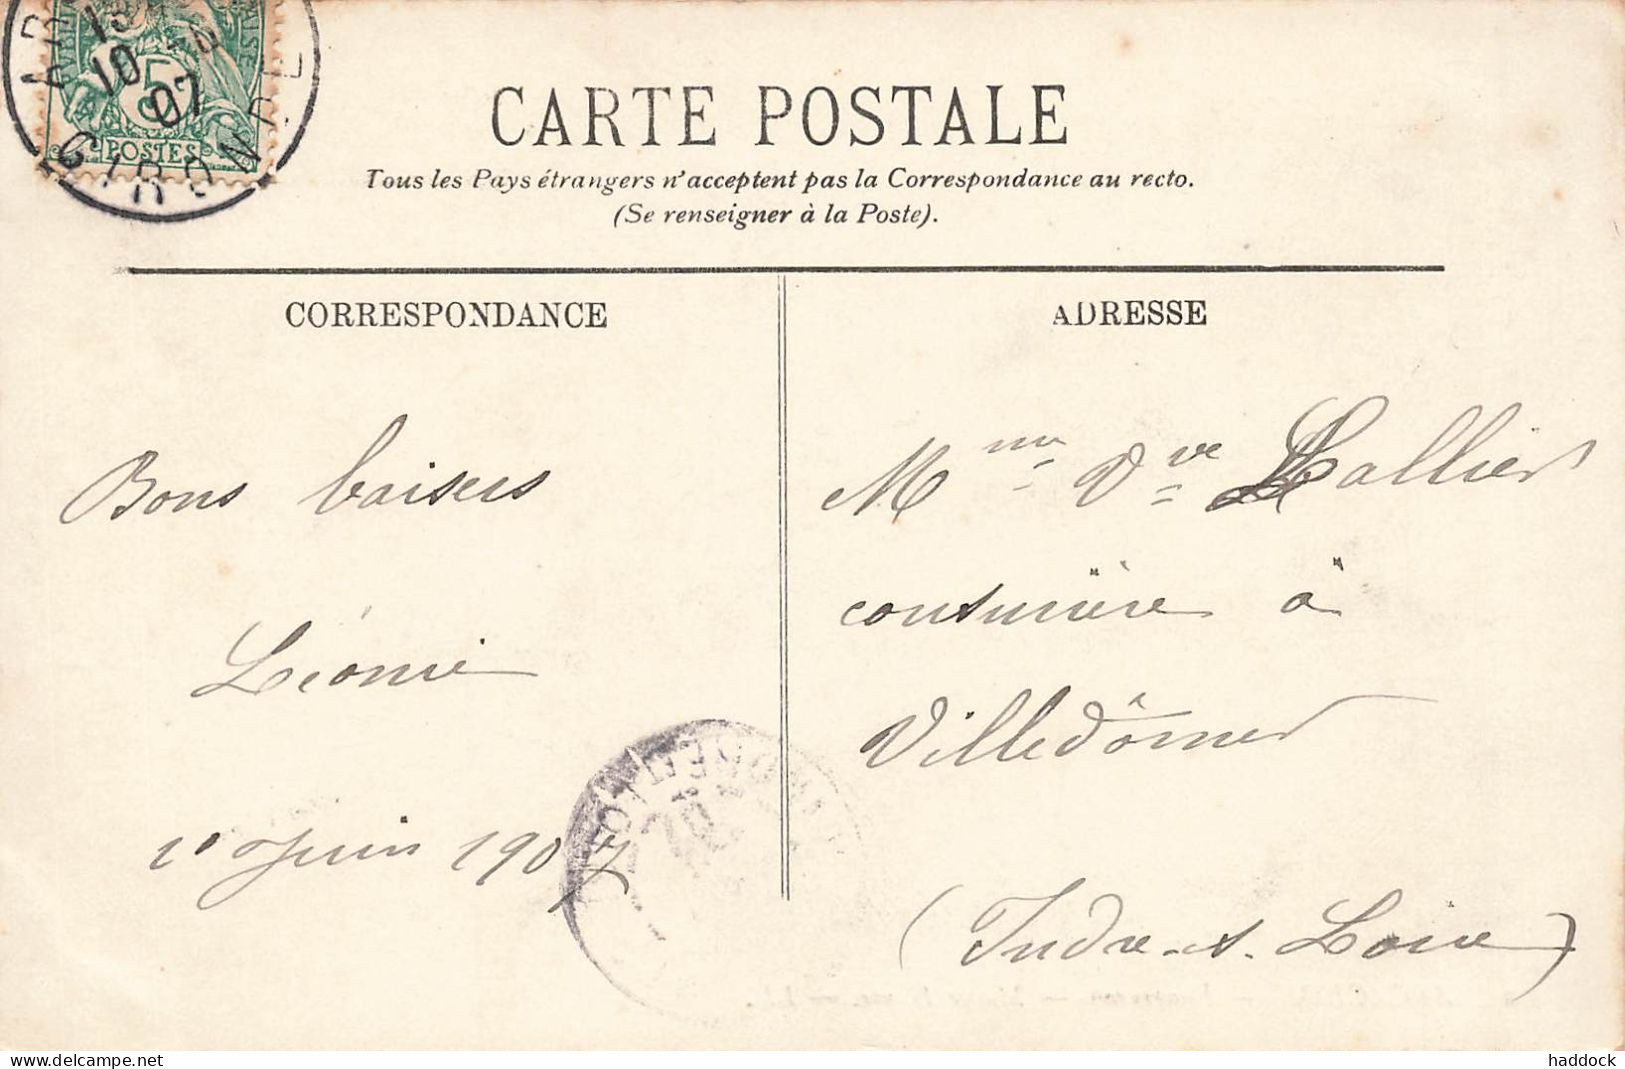 13
10 -6
07
5
POSTES
GIRONDE
CARTE POSTALE
Tous les Pays étrangers n'acceptent pas la Correspondance au recto.
(Se renseigner à la Poste).
CORRESPONDANCE
Bons baisers
Léonie
10 Juin 1907
ADRESSE
Mme Vve Lallier
couturière à
Villedômer
(Indre-s. Loire)
www.delcampe.net
haddock